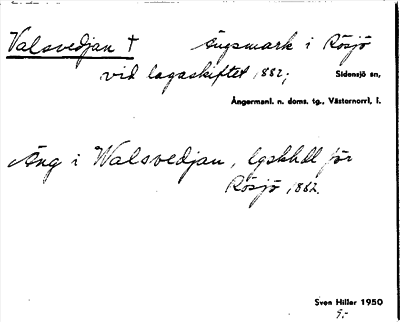 Valsvedjan † Ängsmark i Rösjö
vid lagaskiftet 1882; Sidensjö sn,
Ångermanl. n. doms. tg., Västernorrl. l.
Äng i Walsvedjan, lgskhdl för
Rösjö 1882.
Sven Hiller 1950
S:-